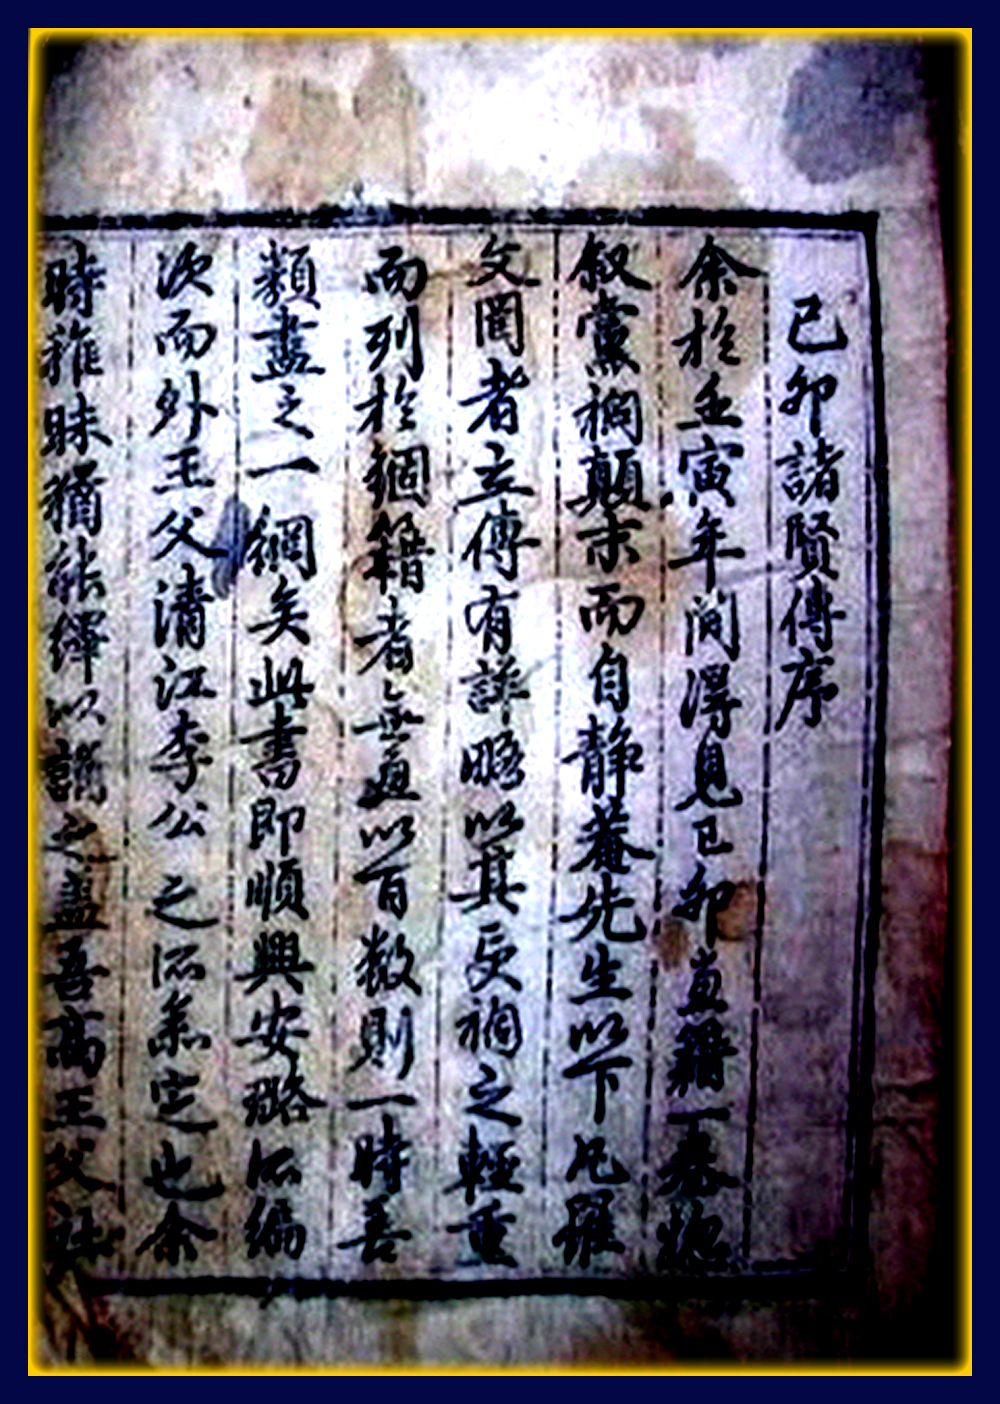 己卯諸賢傳序
余於壬寅年間得見己卯黨籍一卷㧾
叙黨禍顛末而自靜菴先生以下凡羅
文罔者立傳有詳略以其受禍之輕重
而列於錮籍者無慮以百數則一時善
類盡之一網矣此書即順興安璐所編
次而外王父清江李公之所喬定也余
時雖昧猶能繹以誦之盖吾高王父